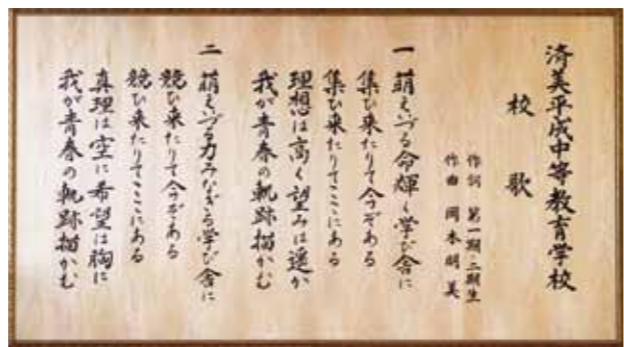 済美平成中等教育学校
校歌
作詞 第一期・二期生
作曲 岡本明美
一 萌えいづる命輝く学び舎に
集ひ来たりて今ぞある
集ひ来たりてここにある
理想は高く望みは遥か
我が青春の軌跡描かむ
二 萌えいづる力みなぎる学び舎に
競ひ来たりて今ぞある
競ひ来たりてここにある
真理は空に希望は胸に
我が青春の軌跡描かむ